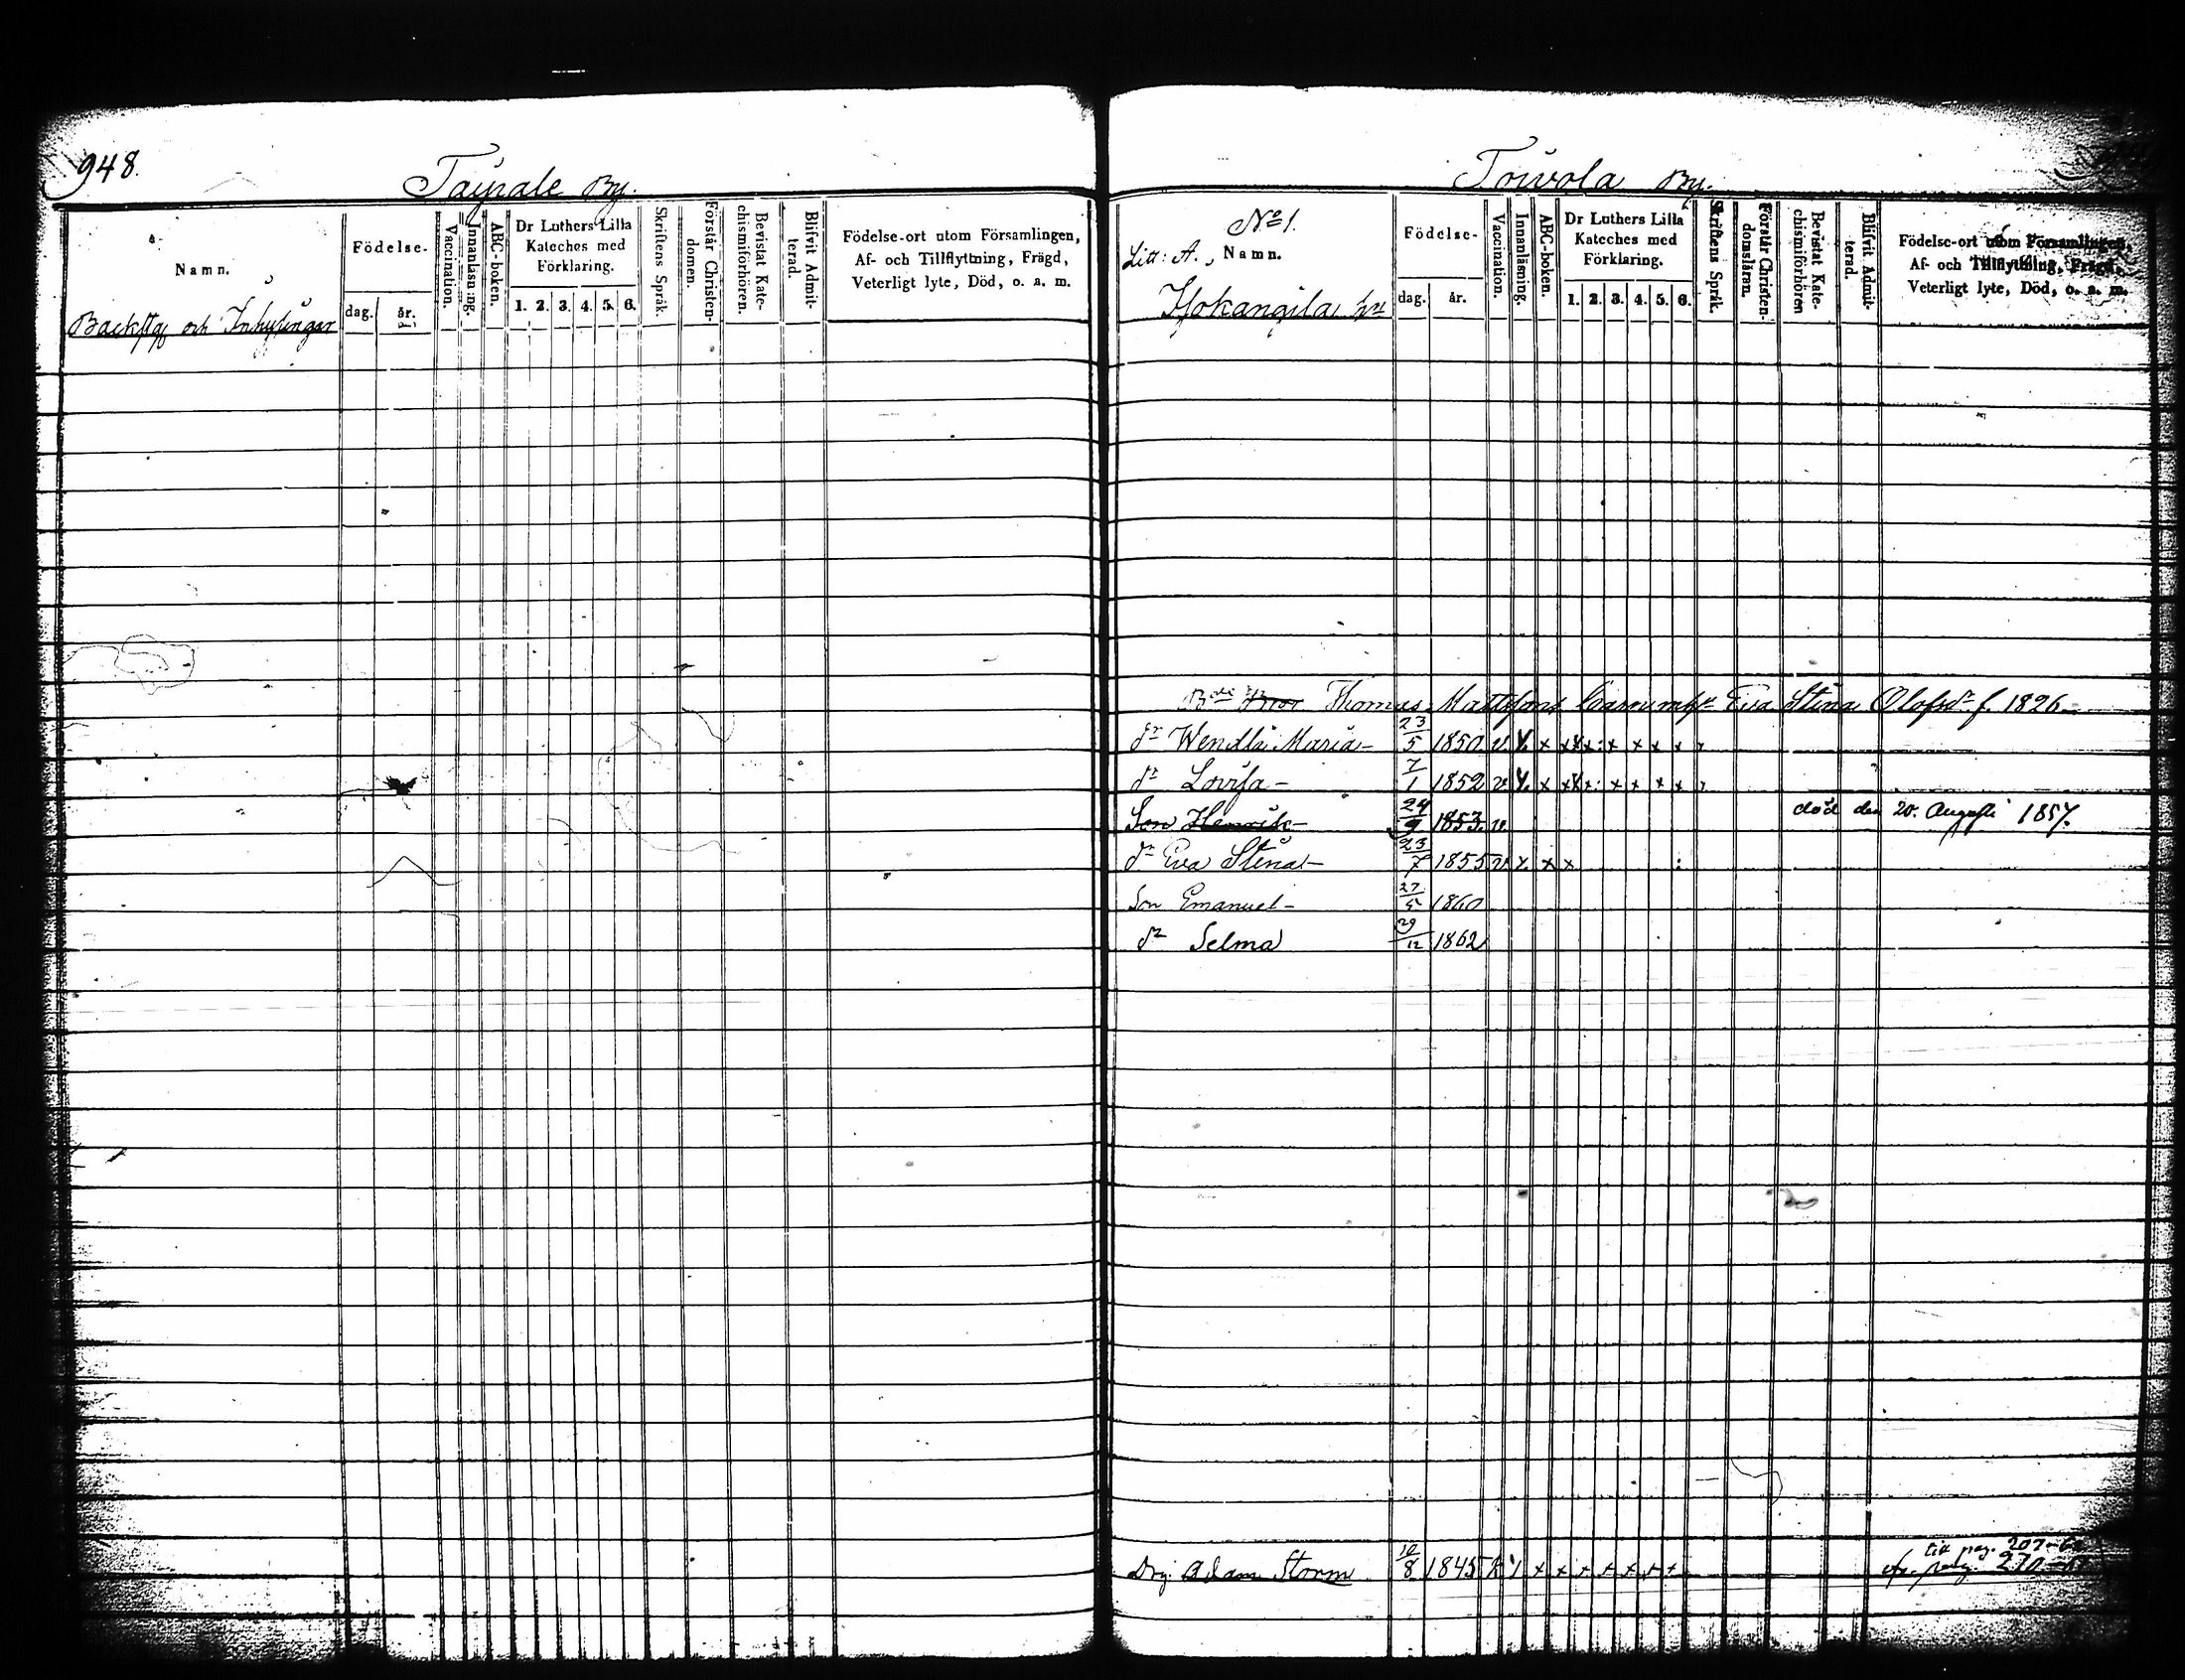 948.
Taipale By.
Namn.
Födelse-
dag. år.
Vaccination.
Innanläsning.
ABC-boken.
Dr Luthers Lilla
Kateches med
Förklaring.
1. 2. 3. 4. 5. 6.
Skriftens Språk.
Förstår Christen-
domen.
Bevistat Kate-
chismiförhören.
Blifvit Admit-
terad.
Födelse-ort utom Församlingen,
Af- och Tillflyttning, Frägd,
Veterligt lyte, Död, o. a. m.
och Inhysingar
Toivola By.
No 1.
Litt: A. Namn.
Födelse-
dag. år.
Vaccination.
Innanläsning.
ABC-boken.
Dr Luthers Lilla
Kateches med
Förklaring.
1. 2. 3. 4. 5. 6.
Skriftens Språk.
Förstår Christen-
domsläran.
Bevistat Kate-
chismiförhören
Blifvit Admit-
terad.
Födelse-ort utom Församlingen,
Af- och Tillflyttning, Frägd,
Veterligt lyte, Död, o. a. m.
Thomas Mattsons Eva Stina Olofsdr f. 1826
dr Wendla Maria 23/5 1850 v x x x x x x x x
dr Lovisa 7/1 1852 v x x x x x x x x
Son Henrik 24/9 1853 v. död den 20. Augusti 1857.
dr Eva Stina 23/7 1855 v. x x x
Son Emanuel 27/5 1860
dr Selma 29/12 1862
Drg. Adam Storm 10/8 1845 x x x x x x x
till pag. 207
pag. 270